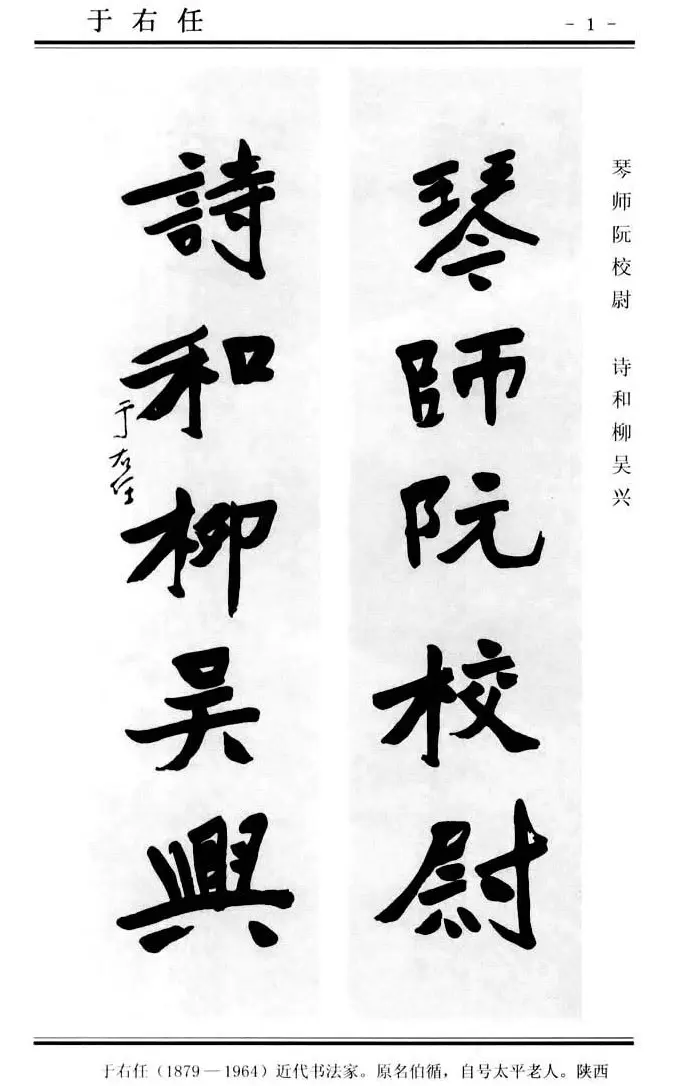 于右任
- 1 -
琴师阮校尉 诗和柳吴兴
琴師阮校尉
詩和柳吴興
于右任
于右任（1879—1964）近代书法家。原名伯循，自号太平老人。陕西